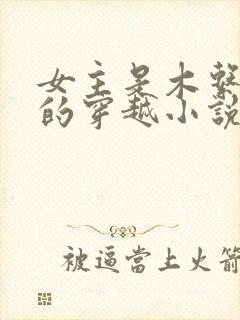 女主是木繫
的穿越小說
被逼當上火箭